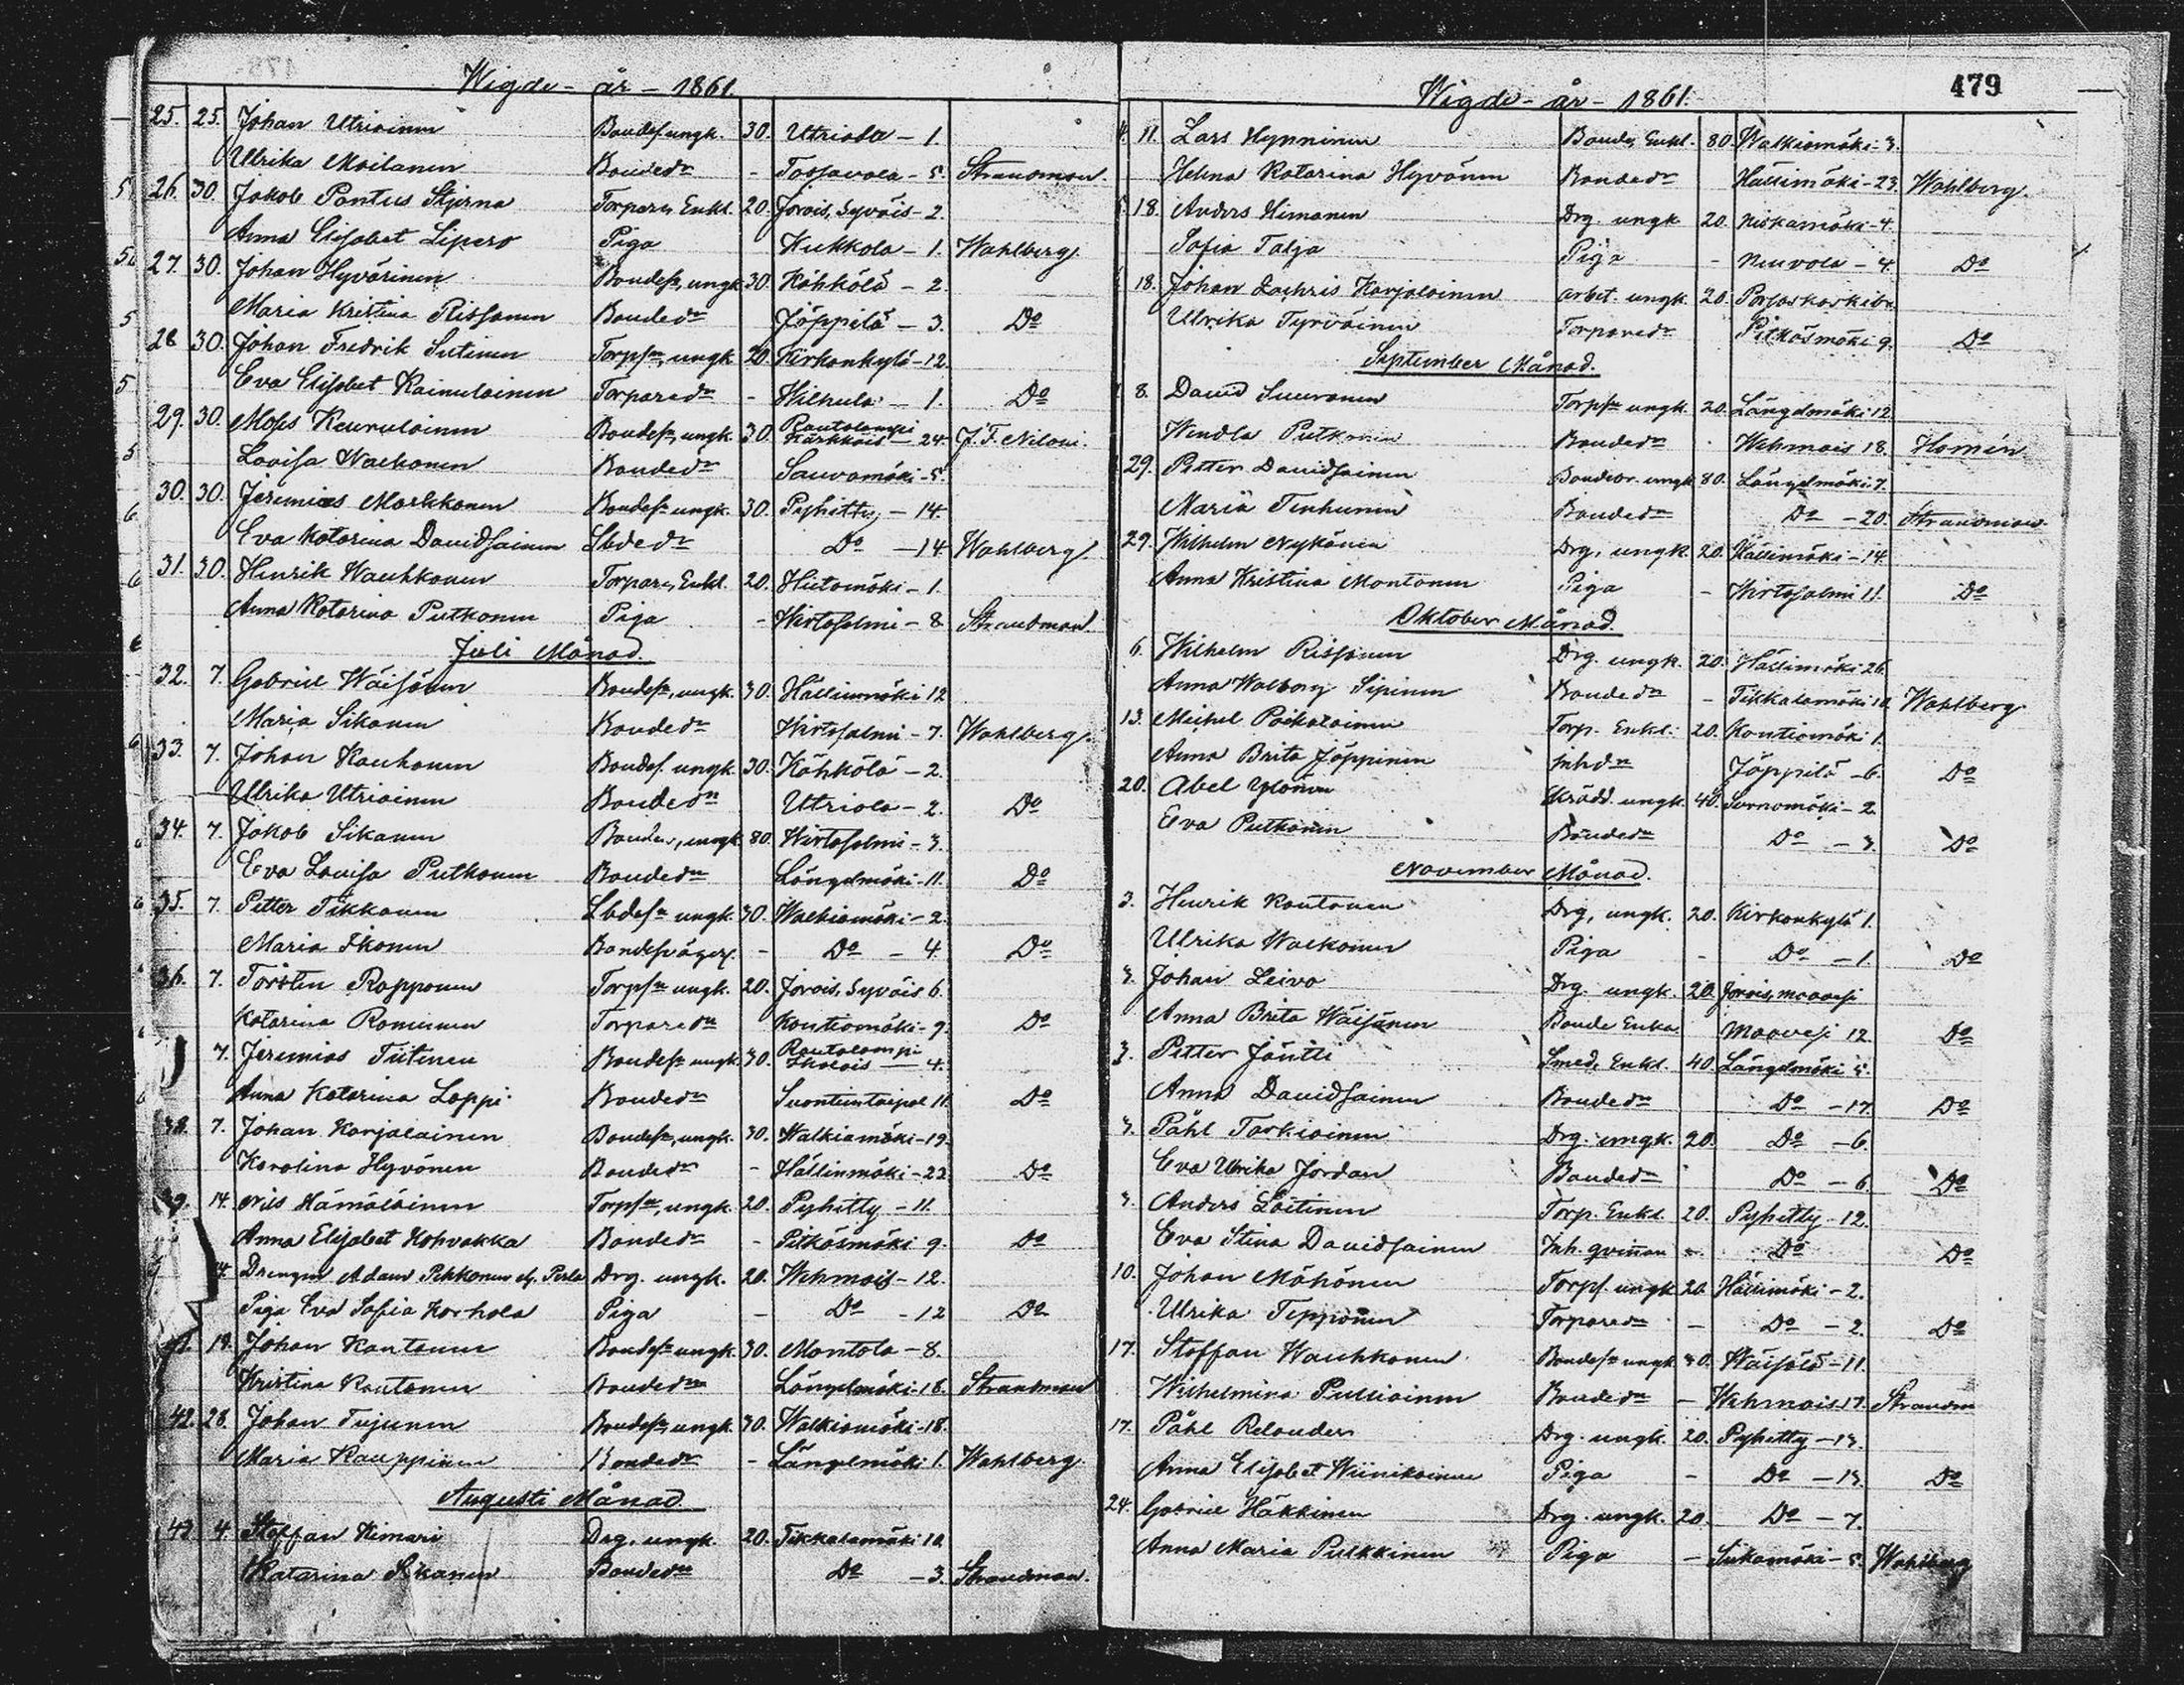 Wigde - år - 1861.
25. 25. Johan Utriainen Bondes. ungk. 30. Utriala - 1.
Ulrika Moilanen Bondedr - Tossavala - 5. Strandman.
26. 30. Jakob Pontus Stjerna Torpare, Enkl. 20. Jorois, Syväis - 2.
Anna Elisabet Lipero Piga Kukkola - 1. Wahlberg.
27. 30. Johan Hyvärinen Bondesn, ungk. 30. Kähkölä - 2.
Maria Kristina Rissanen Bondedr Jäppilä - 3. Do
28 30. Johan Fredrik Sutinen Torpsn, ungk. 20. Kirkonkylä - 12.
Eva Elisabet Kainulainen Torparedr - Hilhula - 1. Do
29. 30. Moses Keurulainen Bondesn, ungk. 30. Rautalampi Kärkkäis - 24. J. F. Niloni.
Lovisa Walkonen Bondedr Sauvamäki - 5.
30. 30. Jeremias Markkanen Bondesn ungk. 30. Pyhitty - 14.
Eva Katarina Davidsainen Lbdedr Do - 14 Wahlberg.
31. 30. Henrik Wauhkonen Torpare, Enkl. 20. Hietamäki - 1.
Anna Katarina Putkonen Piga - Wirtasalmi - 8 Strandman.
Juli Månad.
32. 7. Gabriel Wäisänen Bondesn, ungk. 30. Hällinmäki 12
Maria Sikanen Bondedr Wirtasalmi - 7. Wahlberg.
33. 7. Johan Kauhanen Bondes. ungk. 30. Kähkölä - 2.
Ulrika Utriainen Bondedr Utriala - 2. Do
34. 7. Jakob Sikanen Bonde, ungk. 80. Wirtasalmi - 3.
Eva Lovisa Putkonen Bondedr Längelmäki - 11. Do
35. 7. Petter Tikkanen Lbdesn ungk. 30. Walkiamäki - 2.
Maria Ikonen Bondesväger. - Do - 4 Do
36. 7. Torsten Rapponen Torpsn ungk. 20. Jorois, Syväis 6.
Katarina Romunen Torparedr Kontiomäki - 9. Do
7. Jeremias Tiitinen Bondesn ungk. 30. Rautalampi Ikolais - 4.
Anna Katarina Loppi Bondedr Suontientaipal 11. Do
38. 7. Johan Karjalainen Bondesn, ungk. 30. Walkiamäki - 19.
Karolina Hyvönen Bondedr - Hällinmäki - 23. Do
39. 14. Nils Hämäläinen Torpsn, ungk. 20. Pyhitty - 11.
Anna Elisabet Kohvakka Bondedr - Pitkäsmäki 9. Do
14. Drengen Adam Pekkonen Drg. ungk. 20. Wehmais - 12.
Piga Eva Sofia Korhola Piga - Do - 12 Do
41. 14. Johan Kantanen Bondesn ungk. 30. Montola - 8.
Kristina Rautanen Bondedr Längelmäki - 18. Strandman
42. 28. Johan Tujunen Bondesn ungk. 30. Walkiamäki - 18.
Maria Kauppinen Bondedr - Längelmäki 1. Wahlberg.
Augusti Månad.
43. 4. Staffan Himari Drg. ungk. 20. Tikkalamäki 10.
Katarina Sikanen Bondedr Do - 3. Strandman.
479
Wigde - år - 1861.
11. Lars Hynninen Bonde, Enkl. 80. Walkiamäki - 3.
Helena Katarina Hyvönen Bondedr Hällinmäki - 23. Wahlberg.
18. Anders Himanen Drg. ungk 20. Niskamäki - 4.
Sofia Talja Piga - Neuvola - 4. Do
18. Johan Zachris Karjalainen arbet. ungk. 20. Porsaskoski
Ulrika Tyrväinen Torparedr Pitkäsmäki 9. Do
September Månad.
8. David Suuronen Torpsn ungk. 20. Längelmäki 12.
Wendla Putkonen Bondedr - Wehmais 18. Homén
29. Petter Davidsainen Bondebr. ungk 80. Längelmäki 7.
Maria Tenhunen Bondedr Do - 20. Strandman.
29. Wilhelm Nykänen Drg. ungk. 20. Hällimäki - 14.
Anna Kristina Montonen Piga - Wirtasalmi 11. Do
Oktober Månad.
6. Wilhelm Rissanen Drg. ungk. 20. Hällimäki 26.
Anna Walborg Sipinen Bondedr - Tikkalamäki 10. Wahlberg
13. Mickel Poikalainen Torp. Enkl. 20. Kontiomäki 1.
Anna Brita Jäppinen Inhdr Jäppilä - 6. Do
20. Abel Ylönen Skrädd. ungk. 40. Sornamäki - 2.
Eva Putkonen Bondedr Do - 3. Do
November Månad.
3. Henrik Rautanen Drg. ungk. 20. Kirkonkylä 1.
Ulrika Walkonen Piga - Do - 1. Do
3. Johan Leivo Drg. ungk. 20. Jorois, Maavesi
Anna Brita Wäisänen Bonde Enka Maavesi 12. Do
3. Petter Jäntti Smed, Enkl. 40. Längelmäki 5.
Anna Davidsainen Bondedr Do - 17. Do
3. Påhl Tarkiainen Drg. ungk. 20. Do - 6.
Eva Ulrika Jordan Bondedr Do - 6. Do
3. Anders Loitinen Torp. Enkl. 20. Pyhitty - 12.
Eva Stina Davidsainen Inh. qvinnan - Do Do
10. Johan Mähönen Torps. ungk. 20. Hällimäki - 2.
Ulrika Tepponen Torparedr - Do - 2. Do
17. Staffan Wauhkonen Bondesn ungk. 30. Wäisälä - 11.
Wilhelmina Pulliainen Bondedr - Wehmais 17. Strandm
17. Påhl Relander Drg. ungk. 20. Pyhitty - 13.
Anna Elisabet Wiinikainen Piga - Do - 13. Do
24. Gabriel Häkkinen Drg. ungk. 20. Do - 7.
Anna Maria Pulkkinen Piga - Jukamäki - 5. Wahlberg